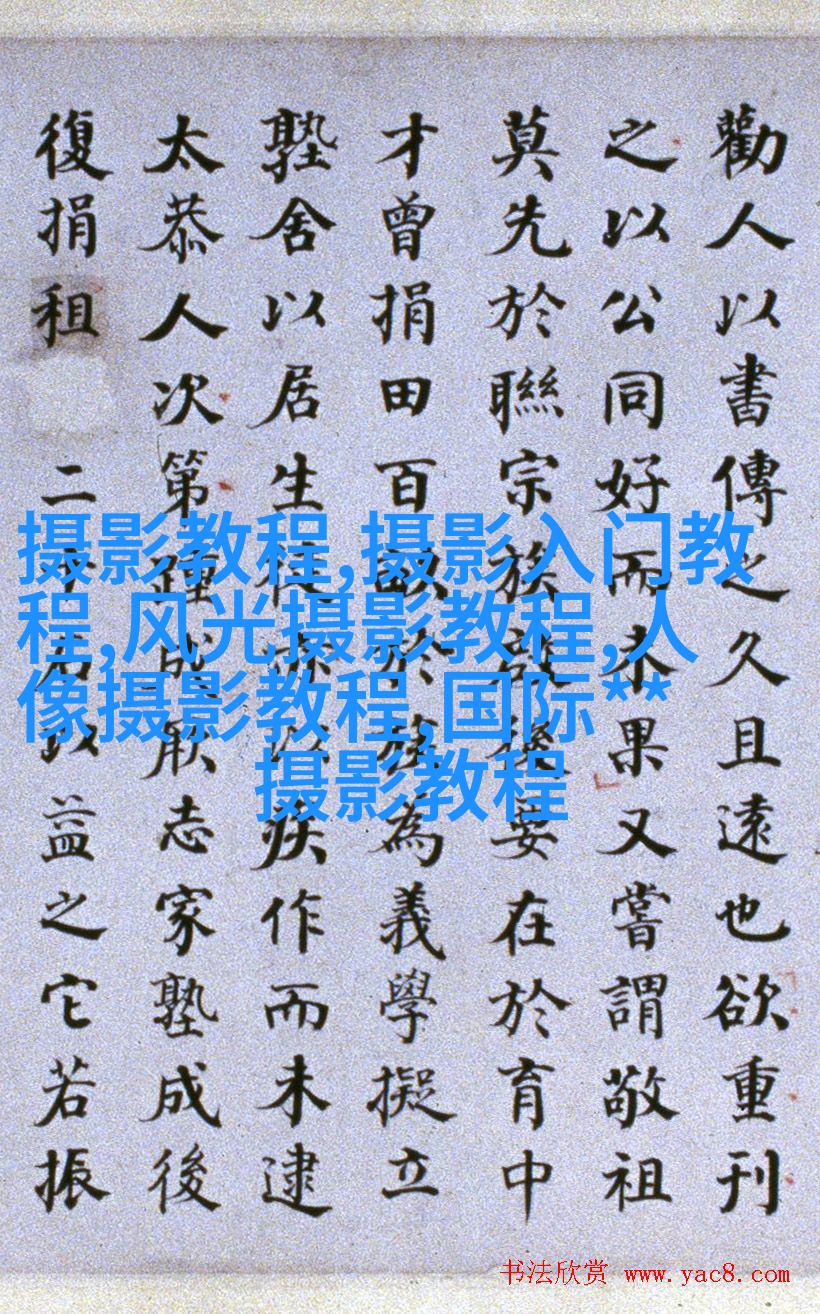 勸人以書傳之久且遠也欲重刊
之以公同好而未果又嘗謂敬祖
莫先於聯宗族啟後要在於育中
才曾捐田百畝於族為義學擬立
塾舍以居生徒亦以疾作而未逮
太恭人次第成厥志家塾成後
復捐租二十石以益之它若振
摄影教程,摄影入门教
程,风光摄影教程,人
像摄影教程,国际**
摄影教程
书法欣赏 www.yac8.com